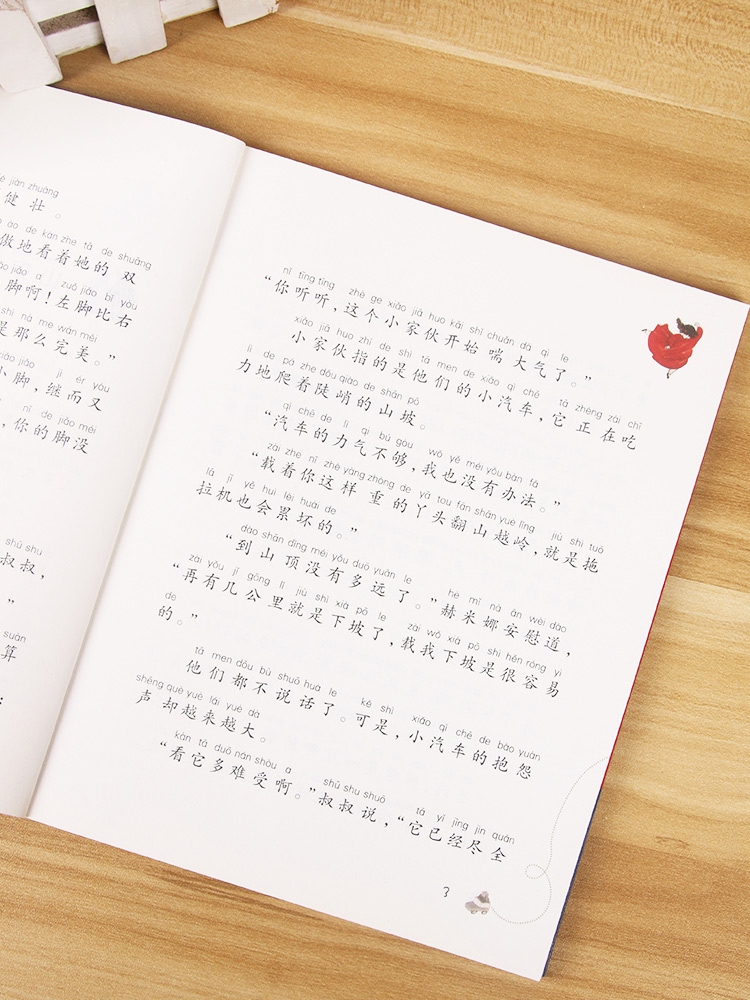 jiàn zhuàng
健 壮 。
ào de kàn zhe tā de shuāng
傲地看着她的 双
jiǎo a zuǒ jiǎo bǐ yòu
脚啊！左脚比右
shì nà me wán měi
是那么完美。”
jiǎo jì ér yòu
小脚，继而又
nǐ de jiǎo méi
，你的脚没
shū shu
叔叔，
”
suàn
算
nǐ tīng tīng zhè ge xiǎo jiā huo kāi shǐ chuǎn dà qì le
“你听听，这个小家伙开始 喘 大气了。”
xiǎo jiā huo zhǐ de shì tā men de xiǎo qì chē tā zhèng zài chī
小家伙指的是他们的小汽车，它 正在吃
lì de pá zhe dǒu qiào de shān pō
力地爬着陡峭的山坡。
qì chē de lì qì bú gòu wǒ yě méi yǒu bàn fǎ
“汽车的力气不够，我也没有办法。”
zài zhe nǐ zhè yàng zhòng de yā tou fān shān yuè lǐng jiù shì tuō
“载着你这样 重的丫头翻山越岭，就是拖
lā jī yě huì lèi huài de
拉机也会累坏的。”
dào shān dǐng méi yǒu duō yuǎn le hè mǐ nà ān wèi dào
“到山 顶没有多远了。”赫米娜安慰道，
zài yǒu jǐ gōng lǐ jiù shì xià pō le zài wǒ xià pō shì hěn róng yì
“再有几公里就是下坡了，载我下坡是很容易
de
的。”
tā men dōu bù shuō huà le kě shì xiǎo qì chē de bào yuàn
他们都不说话了。可是，小汽车的抱怨
shēng què yuè lái yuè dà
声 却越来越大。
kàn tā duō nán shòu a shū shu shuō tā yǐ jīng jìn quán
“看它多难受啊。”叔叔说，“它已经尽全
3